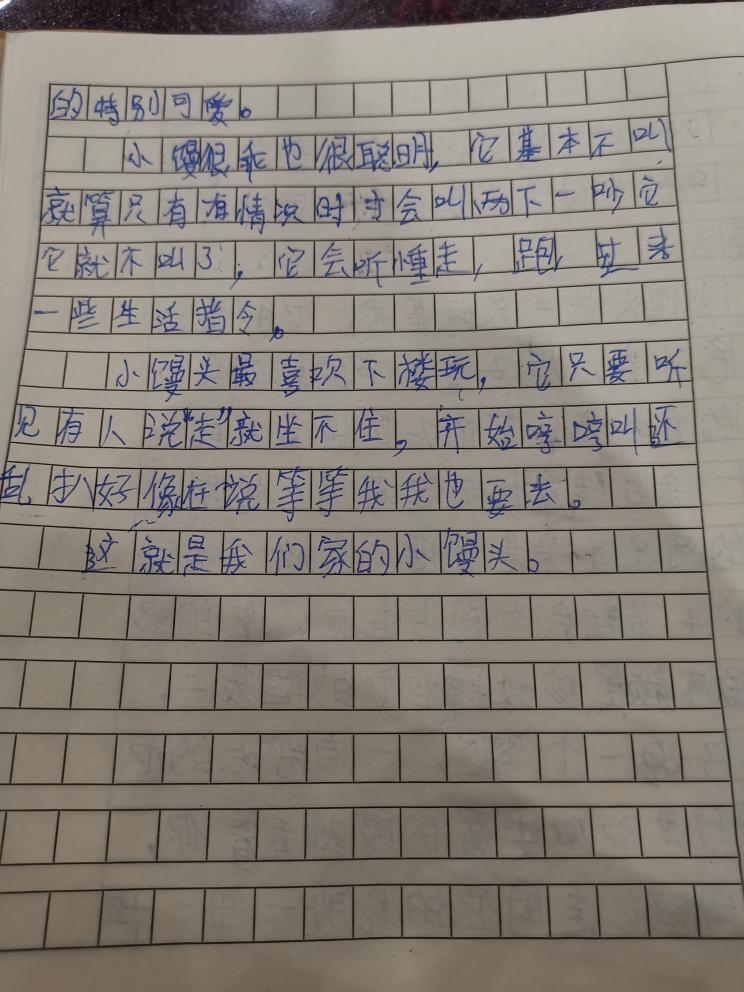 的特别可爱。
小馒很乖也很聪明，它基本不叫
就算只有有情况时才会叫两下一吵它
它就不叫了，它会听懂走，跑，过来
一些生活指令。
小馒头最喜欢下楼玩，它只要听
见有人说“走”就坐不住，开始哼哼叫还
乱扒好像在说等等我我也要去。
这就是我们家的小馒头。